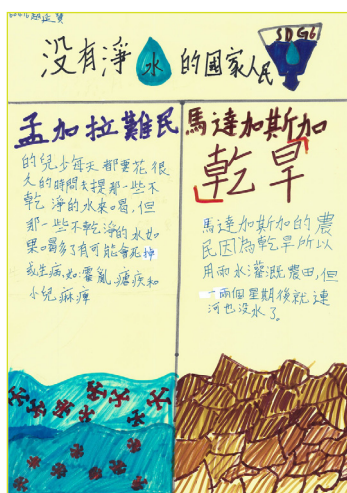 沒有淨水的國家人民
SDG6
孟加拉難民
的兒少每天都要花很
久的時間去提那一些不
乾淨的水來喝,但
那一些不乾淨的水如
果喝多了有可能會死掉
或生病,如:霍亂,瘧疾和
小兒麻痺
馬達加斯加
乾旱
馬達加斯加的農
民因為乾旱所以
用雨水灌溉農田,但
一兩個星期後就連
河也沒水了。